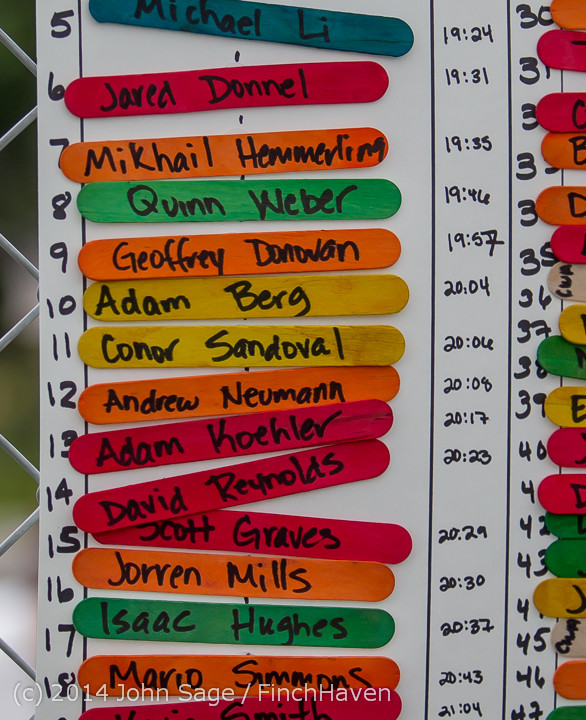 5 Michael Li 19:24
6 Jared Donnel 19:31
7 Mikhail Hemmerling 19:35
8 Quinn Weber 19:46
9 Geoffrey Donovan 19:57
10 Adam Berg 20:04
11 Conor Sandoval 20:06
12 Andrew Neumann 20:08
13 Adam Koehler 20:17
14 David Reynolds 20:23
15 Scott Graves 20:29
16 Jorren Mills 20:30
17 Isaac Hughes 20:37
18 Mario Simmons 20:43
Smith 21:04
30
35
36
37
38
39
40
42
45
46
47
(c) 2014 John Sage / FinchHaven